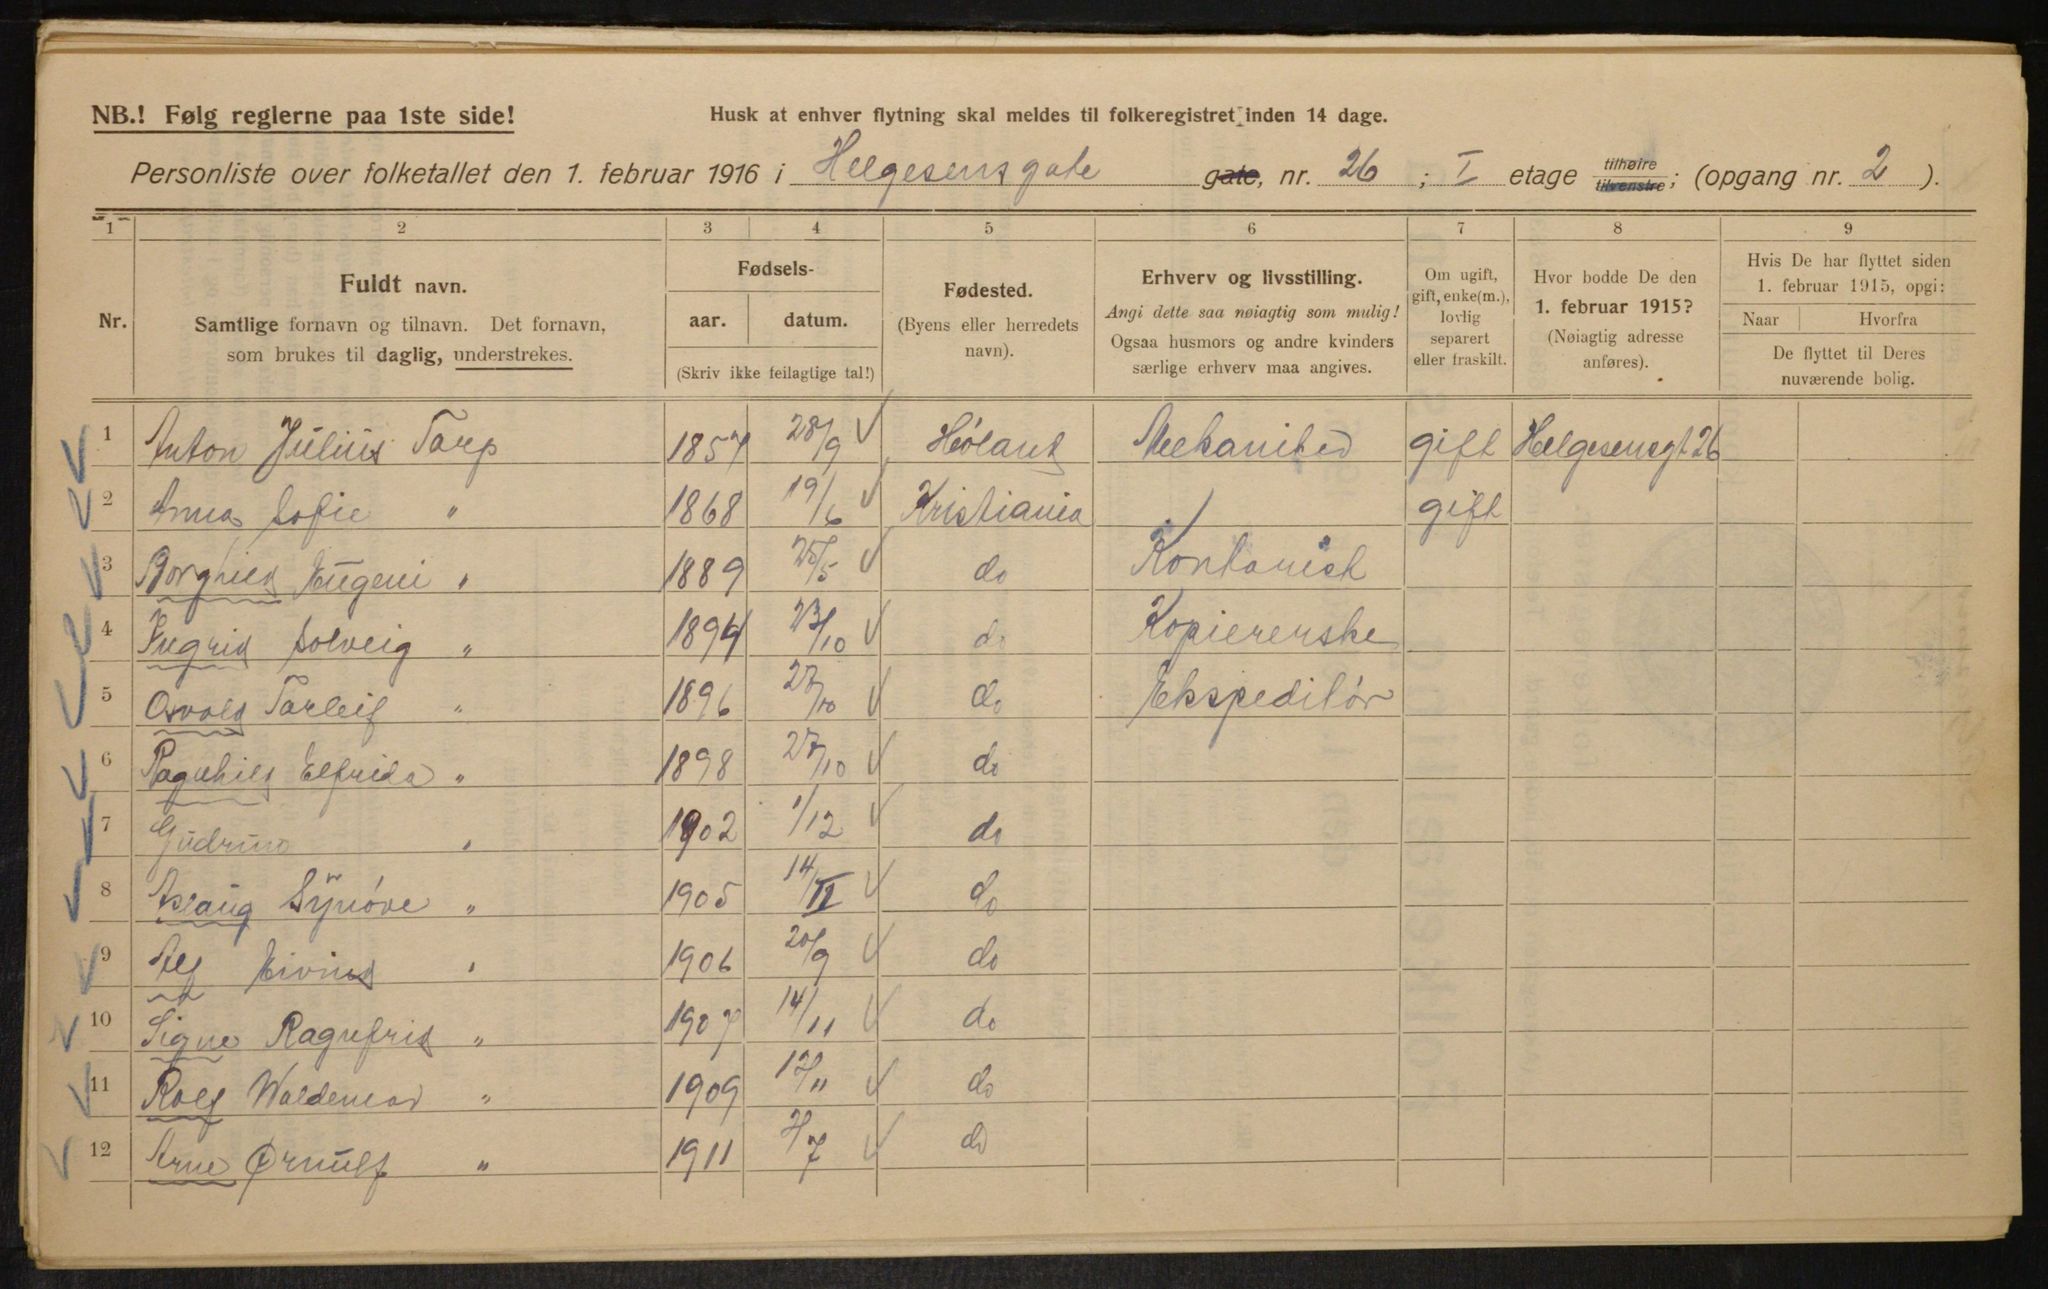 NB.! Følg reglerne paa 1ste side! Husk at enhver flytning skal meldes til folkeregistret inden 14 dage.
Personliste over folketallet den 1. februar 1916 i Helgesensgate gate, nr. 26 ; I etage tilhøire tilvenstre; (opgang nr. 2 ).
1 2 3 4 5 6 7 8 9
Nr.
Fuldt navn.
Samtlige fornavn og tilnavn. Det fornavn,
som brukes til daglig, understrekes.
Fødsels-
aar. datum.
(Skriv ikke feilagtige tal!)
Fødested.
(Byens eller herredets
navn).
Erhverv og livsstilling.
Angi dette saa nøiagtig som mulig!
Ogsaa husmors og andre kvinders
særlige erhverv maa angives.
Om ugift,
gift, enke(m.),
lovlig
separert
eller fraskilt.
Hvor bodde De den
1. februar 1915?
(Nøiagtig adresse
anføres).
Hvis De har flyttet siden
1. februar 1915, opgi:
Naar Hvorfra
De flyttet til Deres
nuværende bolig.
1 Anton Julius Tarp 1857 28/9 Høland Mekaniker gift Helgesensgt 26
2 Anna Sofie " 1868 19/6 Kristiania / gift
3 Borghild Eugeni " 1889 25/5 do Kontorist
4 Ingrid Solveig " 1894 23/10 do Kopiererske
5 Osvald Torleif " 1896 27/10 do Ekspeditør
6 Ragnhild Elfrida " 1898 27/10 do
7 Gudrun " 1902 1/12 do
8 Aslaug Synøve " 1905 14/II do
9 Alf Eivind " 1906 20/9 do
10 Signe Ragnfrid " 1907 14/11 do
11 Rolf Waldemar " 1909 12/11 do
12 Arne Ørnulf " 1911 /7 do